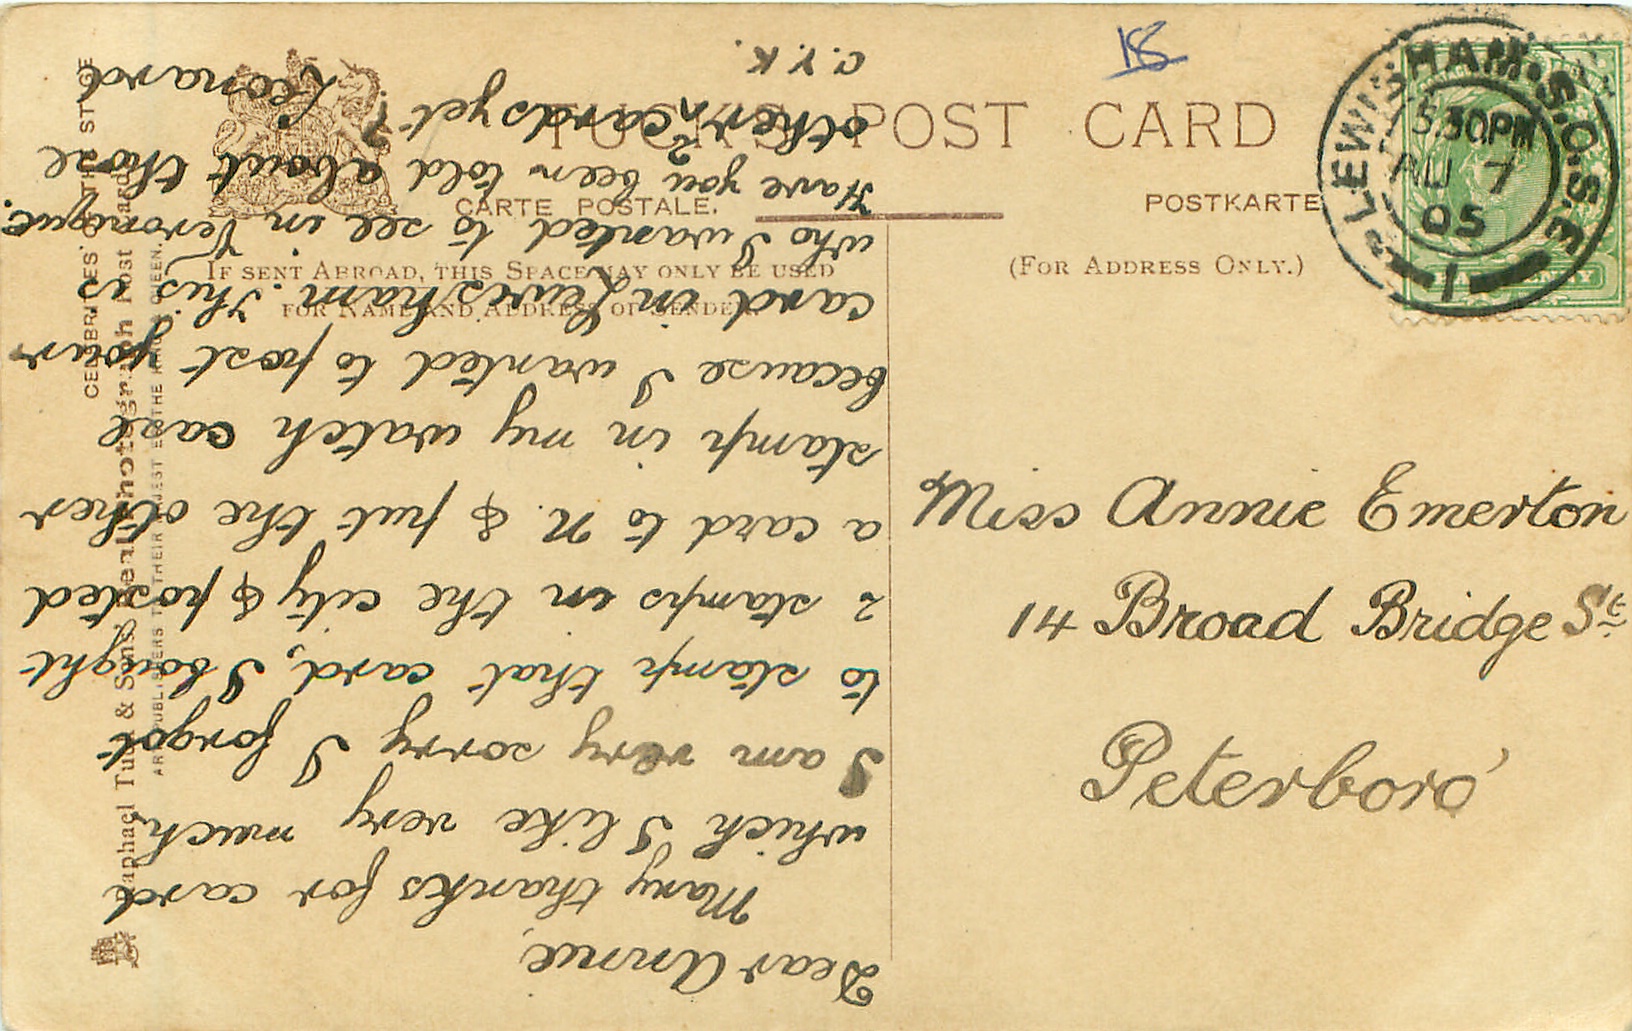 TUCK'S POST CARD
CARTE POSTALE.
POSTKARTE
IF SENT ABROAD, THIS SPACE MAY ONLY BE USED
FOR NAME AND ADDRESS OF SENDER.
(FOR ADDRESS ONLY.)
18
LEWISHAM. S.O. S.E
5.30PM
AU 7
05
1
CELEBRITIES OF THE STAGE
Raphael Tuck & Sons' "Real Photograph" Post Card
ART PUBLISHERS TO THEIR MAJESTIES THE KING & QUEEN.
Miss Annie Emerton
14 Broad Bridge St
Peterboro'
Dear Annie,
Many thanks for card
which I like very much,
I am very sorry I forgot
to stamp that card, I bought
2 stamps in the city & posted
a card to N. & put the other
stamp in my watch case
because I wanted to post your
card in Lewisham. This is
who I wanted to see in Veronique.
Have you been told about those
other 2 cards yet?
Leonard
C.Y.K.